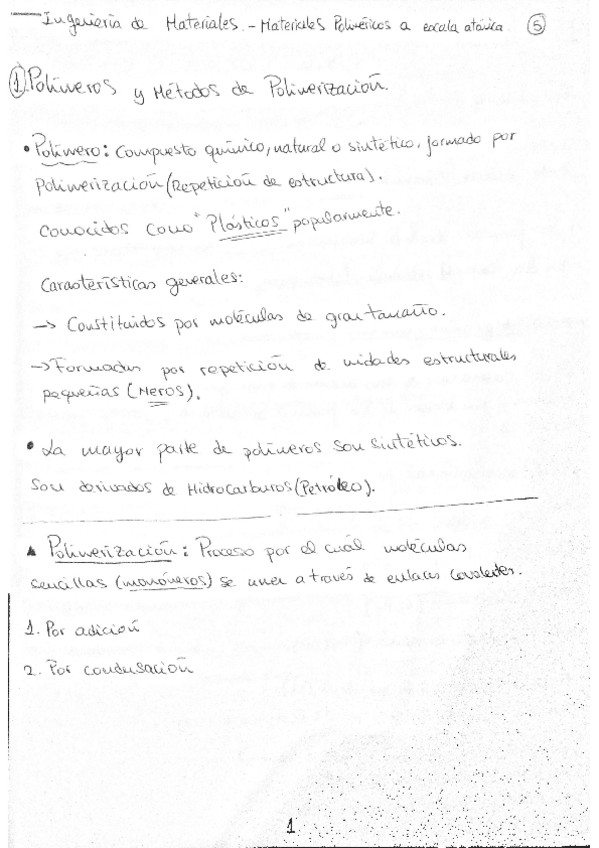 Ingeniería de Materiales. - Materiales Poliméricos a escala atómica. 5
1. Polímeros y Métodos de Polimerización.
• Polímero: Compuesto químico, natural o sintético, formado por
Polimerización (Repetición de estructura).
Conocidos como "Plásticos" popularmente.
Características generales:
→ Constituidos por moléculas de gran tamaño.
→ Formadas por repetición de unidades estructurales
pequeñas (Meros).
• La mayor parte de polímeros son sintéticos.
Son derivados de Hidrocarburos (Petróleo).
▲ Polimerización: Proceso por el cuál moléculas
sencillas (monómeros) se unen a través de enlaces covalentes.
1. Por adición
2. Por condensación
1